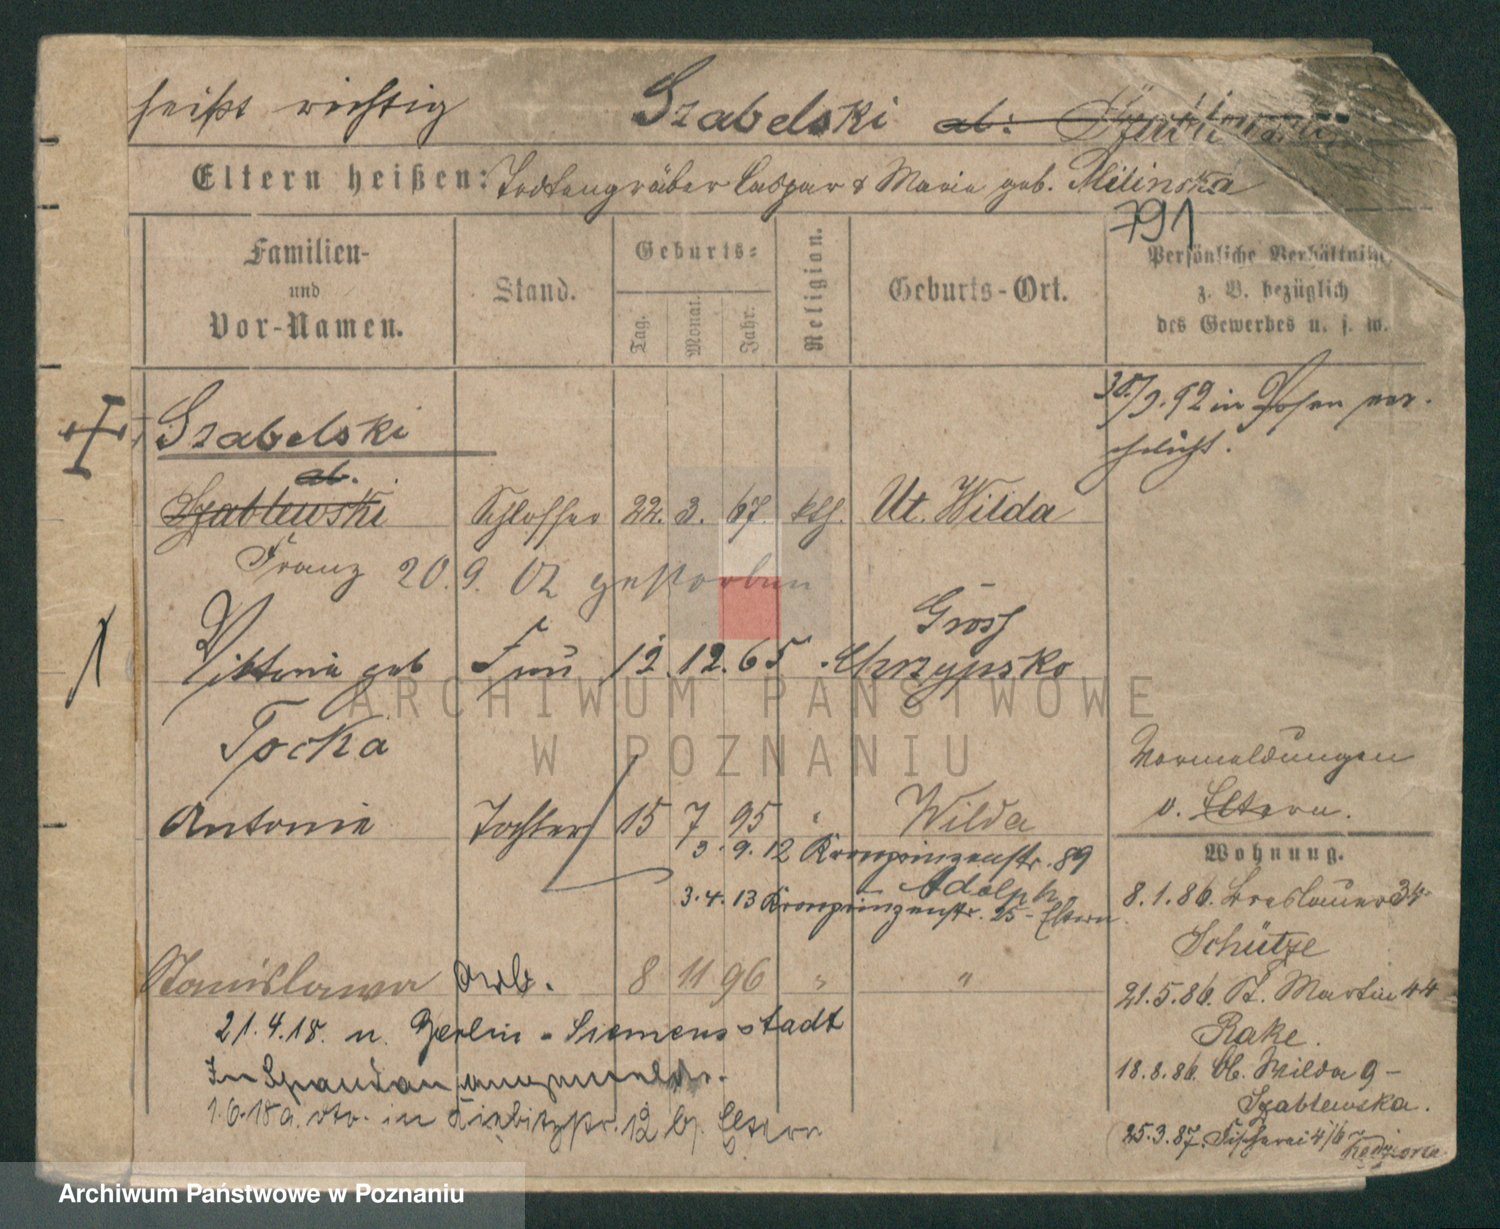 heißt richtig Szabelski ab:
Eltern heißen: Todtengräber Caspar & Marie geb. Milinska
791
Familien- und Vor-Namen.
Stand.
Geburts=
Tag. Monat. Jahr.
Religion.
Geburts-Ort.
Persönliche Verhältnisse
z. B. bezüglich
des Gewerbes u. s. w.
30./9.92 in Posen ver-
ehelicht.
Szabelski
ab.
Szablewski Schlosser 22. 3. 67. kth. Ut. Wilda
Franz 20.9.02 gestorben
Viktoria geb Frau 12. 12. 65 Gross Chrzypsko
Tocka
Antonie Tochter 15 7 95 " Wilda
3.9.12 Kronprinzenstr. 89
Adolph
3.4.13 Kronprinzenstr. 25 - Eltern
Stanislawa Arb. 8 11 96 " "
21.4.18. n. Berlin - Siemensstadt
In Spandau angemeldet.
1.6.18 a. dto. in 12 b/ Eltern
Vormeldungen
v. Eltern.
Wohnung.
8.1.86. Breslauer 34
Schütze
21.5.86. St. Martin 44
Rake.
18.8.86. Ob. Wilda 9 -
Szablewska.
25.3.87. Fischerei 4/6
Kedziora
ARCHIWUM PAŃSTWOWE
W POZNANIU
Archiwum Państwowe w Poznaniu